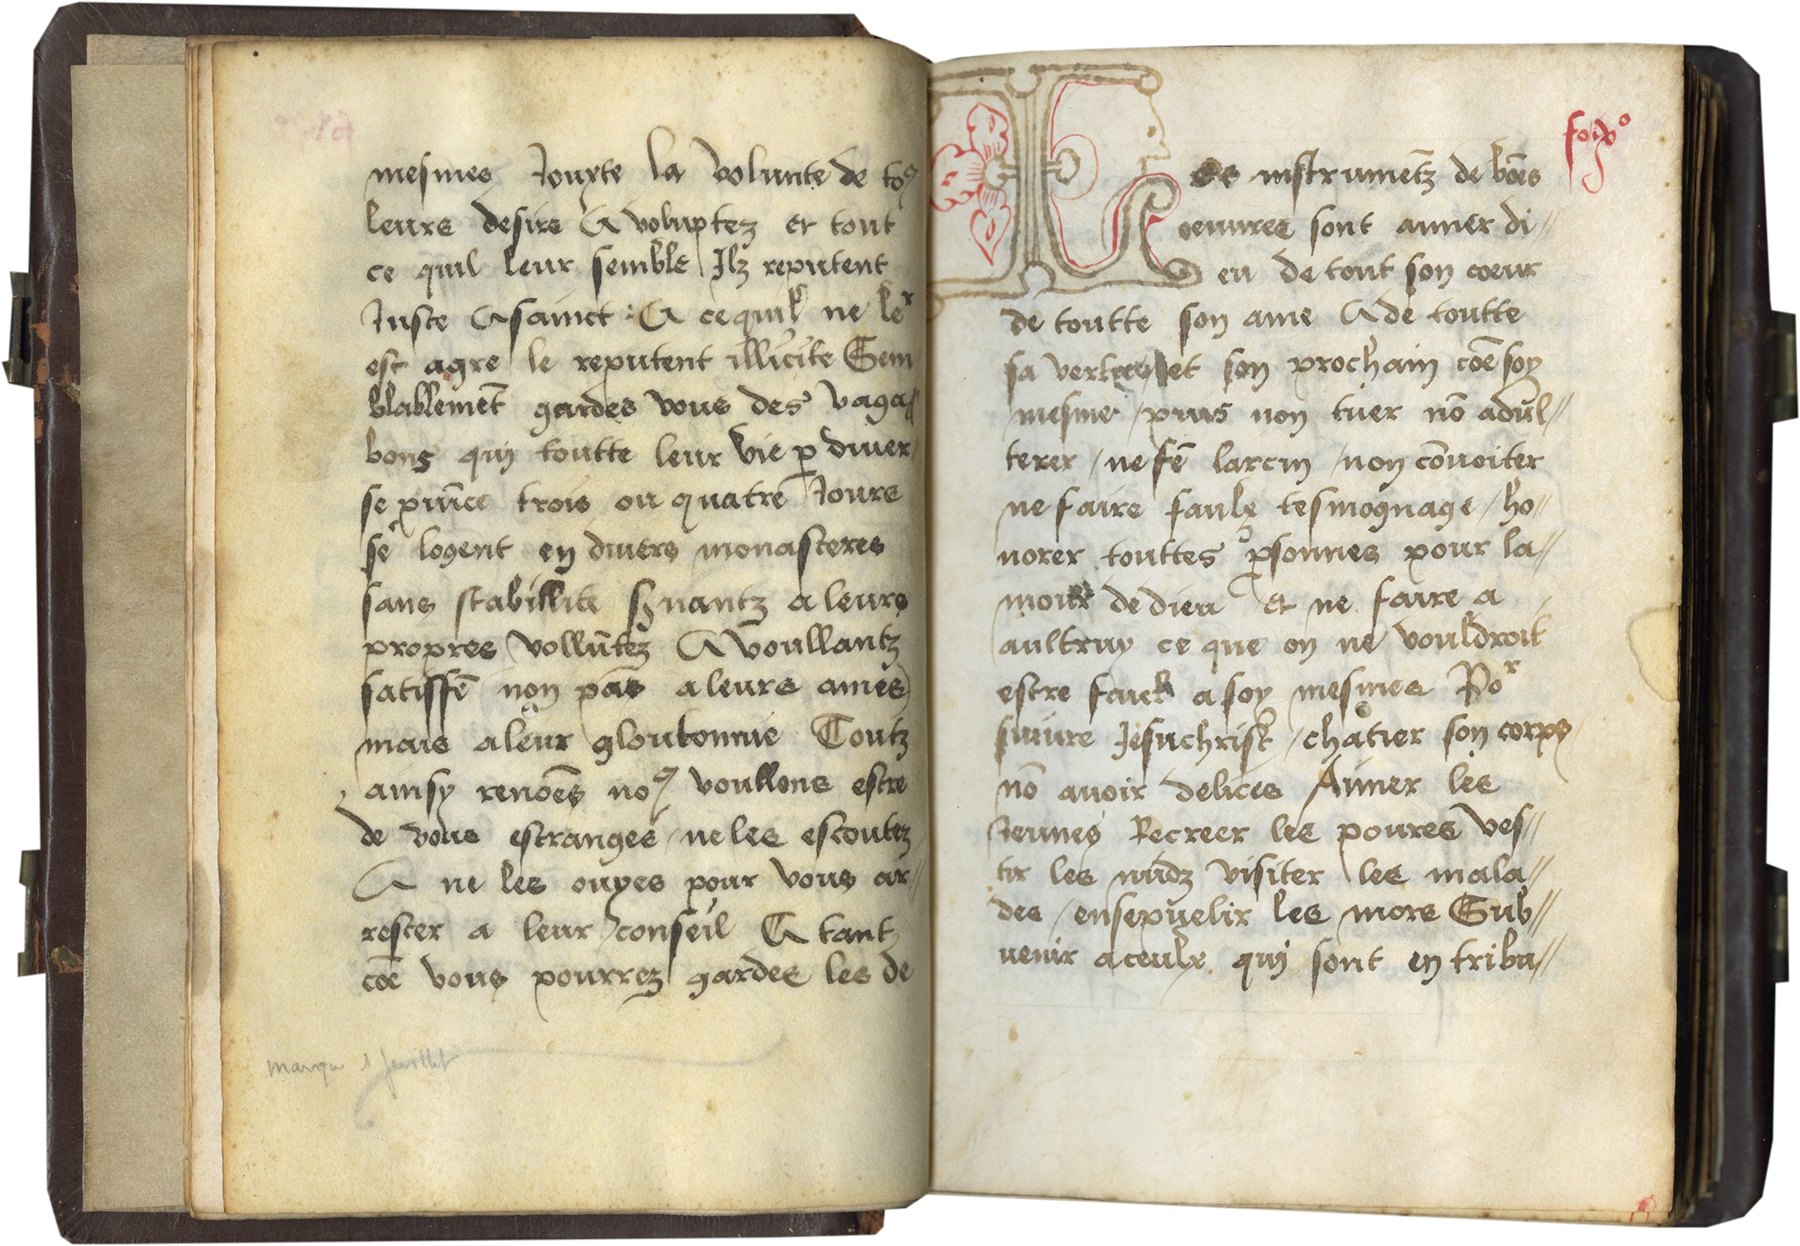 mesmes Jouxte la volunte de to9
leurs desirs & voluptez et tout
ce quil leur semble Ilz reputent
Juste & sainct : & ce quilz ne le^r
est agre le reputent illicite Sem
blablemēt gardes vous des vaga//
bons qui toutte leur vie p diuer
se puīce trois ou quatre Jours
se logent en diuers monasteres
sans stabillite suantz a leurs
propres vollūtez & voullantz
satiffē non pas a leurs ames
mais a leur gloutonnie Toutz
ainsy renoēs no9 voullons estre
de vous estranges / ne les escoutez
& ne les ouyes pour vous ar//
rester a leur conseil & tant
cōe vous pourrez gardes les de
marqu 1 feuillet
fo x°
Les instrumētz de bōes
oeuures sont aimer di//
eu de tout son coeur
de toutte son ame & de toutte
sa vertu et son prochain cōe soy
mesme / puis non tuer nō adul//
terer / ne fē larcin / non cōuoiter
ne faire faulx tesmognage / ho//
norer touttes psonnes pour la//
mour de dieu Et ne faire a
aultruy ce que on ne vouldroit
estre faict a soy mesmes Po^r
suiure Jesuchrist / chatier son corps
nō auoir delices Aimer les
Jeunes Recreer les poures ves//
tir les nudz visiter les mala//
des / ensepuelir les mors Sub//
uenir a ceulx qui sont en tribu//